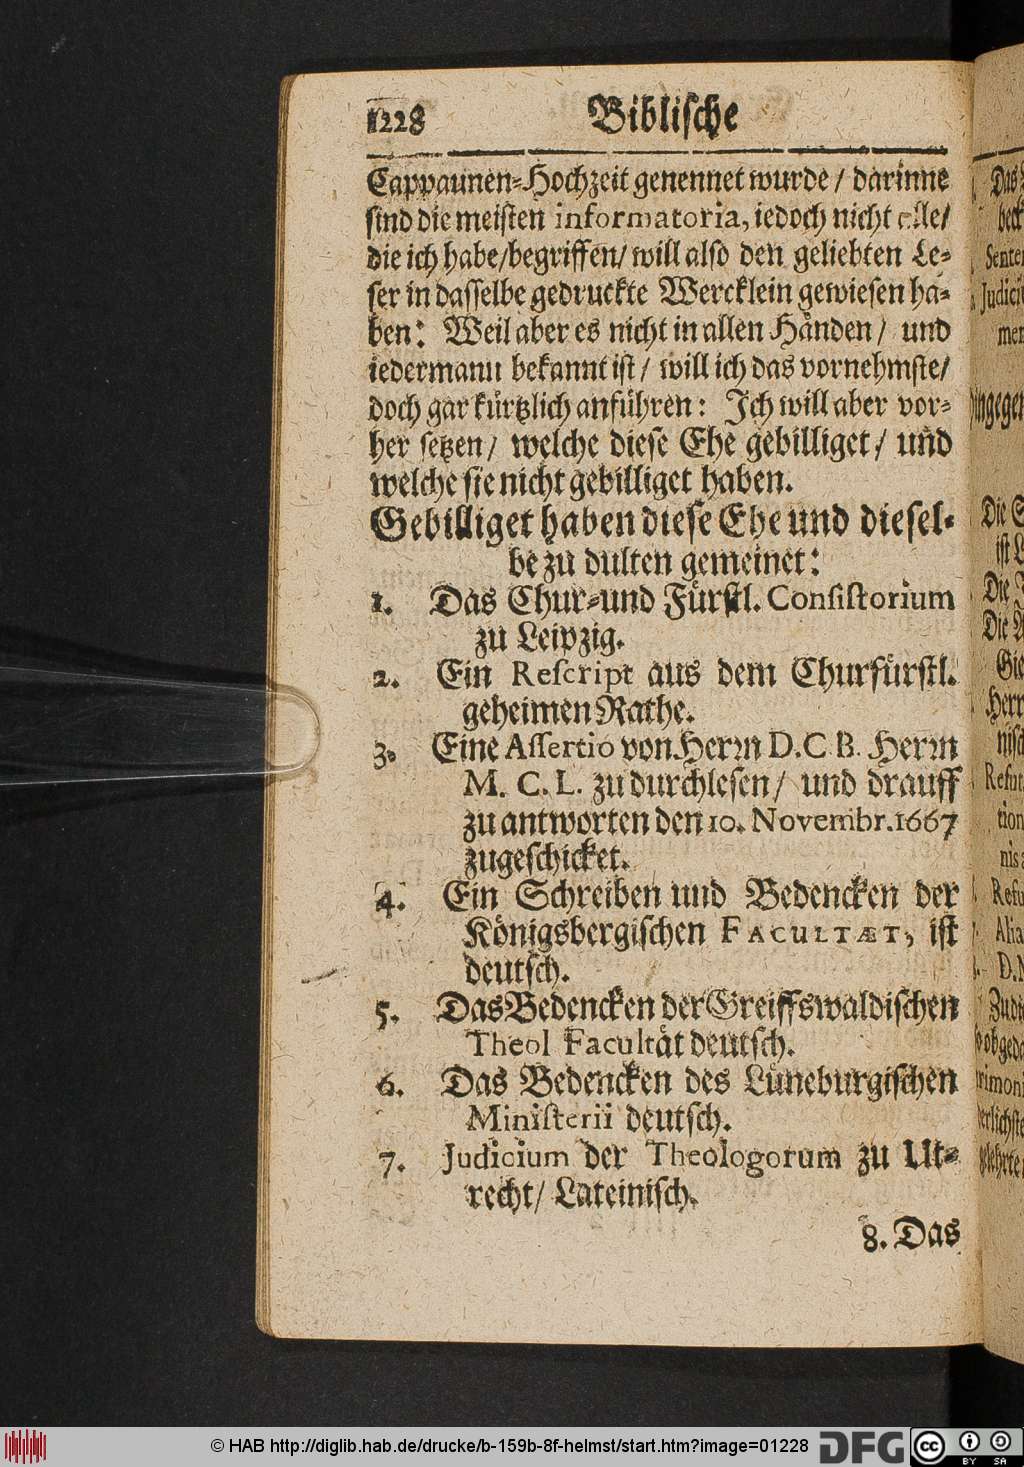 1228 Biblische
Cappaunen-Hochzeit genennet wurde / darinne
sind die meisten informatoria, iedoch nicht alle/
die ich habe/begriffen/ will also den geliebten Le-
ser in dasselbe gedruckte Wercklein gewiesen ha-
ben: Weil aber es nicht in allen Händen / und
iedermann bekannt ist / will ich das vornehmste/
doch gar kürtzlich anführen: Ich will aber vor-
her setzen / welche diese Ehe gebilliget / und
welche sie nicht gebilliget haben.
Gebilliget haben diese Ehe und diesel-
be zu dulten gemeinet:
1. Das Chur-und Fürstl. Consistorium
zu Leipzig.
2. Ein Rescript aus dem Churfürstl.
geheimen Rathe.
3. Eine Assertio von Herrn D.C.B. Herrn
M. C. L. zu durchlesen / und drauff
zu antworten den 10. Novembr. 1667
zugeschicket.
4. Ein Schreiben und Bedencken der
Königsbergischen FACULTÆT, ist
deutsch.
5. Das Bedencken der Greiffswaldischen
Theol Facultät deutsch.
6. Das Bedencken des Lüneburgischen
Ministerii deutsch.
7. Judicium der Theologorum zu Ut-
recht / Lateinisch.
8. Das
© HAB http://diglib.hab.de/drucke/b-159b-8f-helmst/start.htm?image=01228
DFG
cc BY SA